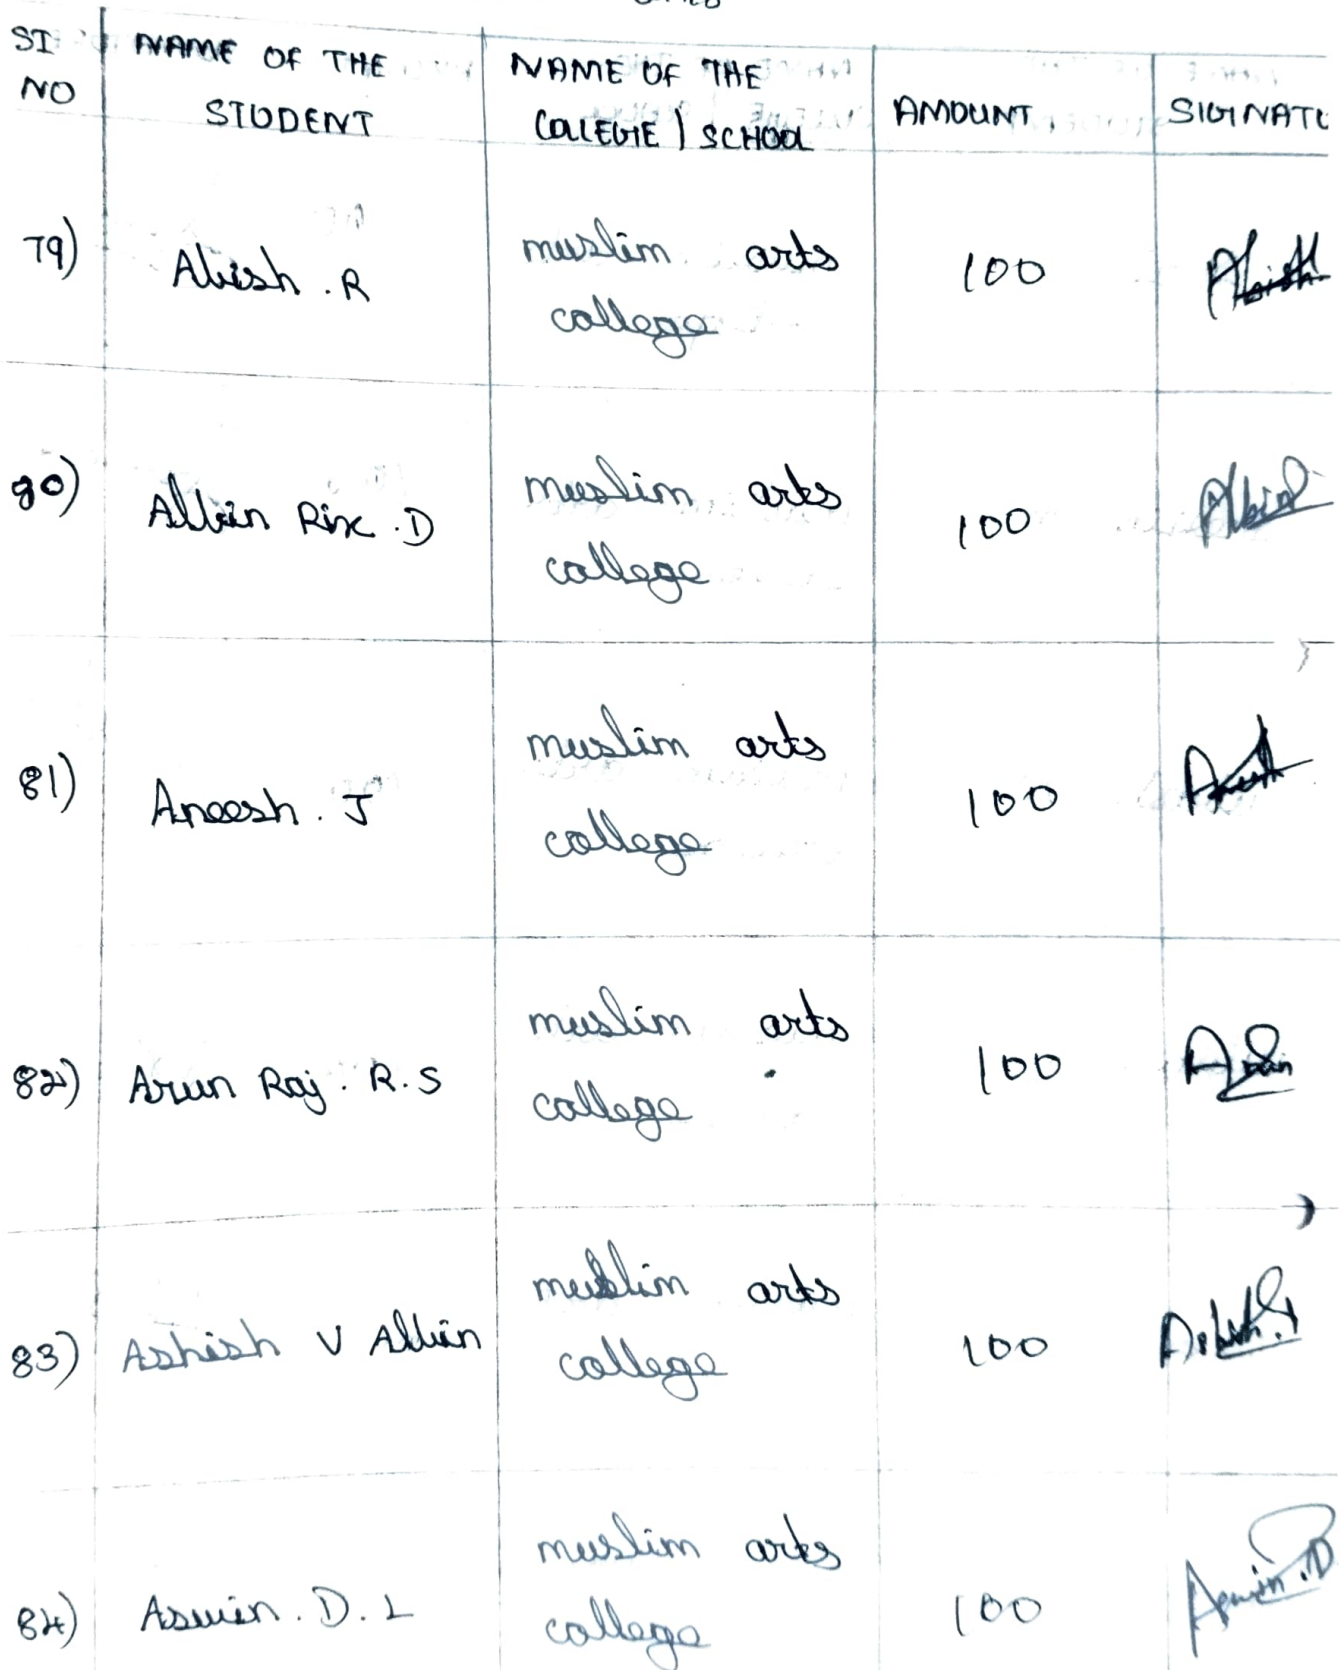 SI NO | NAME OF THE STUDENT | NAME OF THE COLLEGE | SCHOOL | AMOUNT | SIGINATU
79) Abish . R | muslim arts college | 100 | Abish
80) Albin Rix . D | muslim arts college | 100 | Albin
81) Aneesh . J | muslim arts college | 100
82) Arun Raj . R . S | muslim arts college | 100 | Arun
83) Ashish V Albin | muslim arts college | 100
84) Aswin . D . L | muslim arts college | 100 | Aswin . D